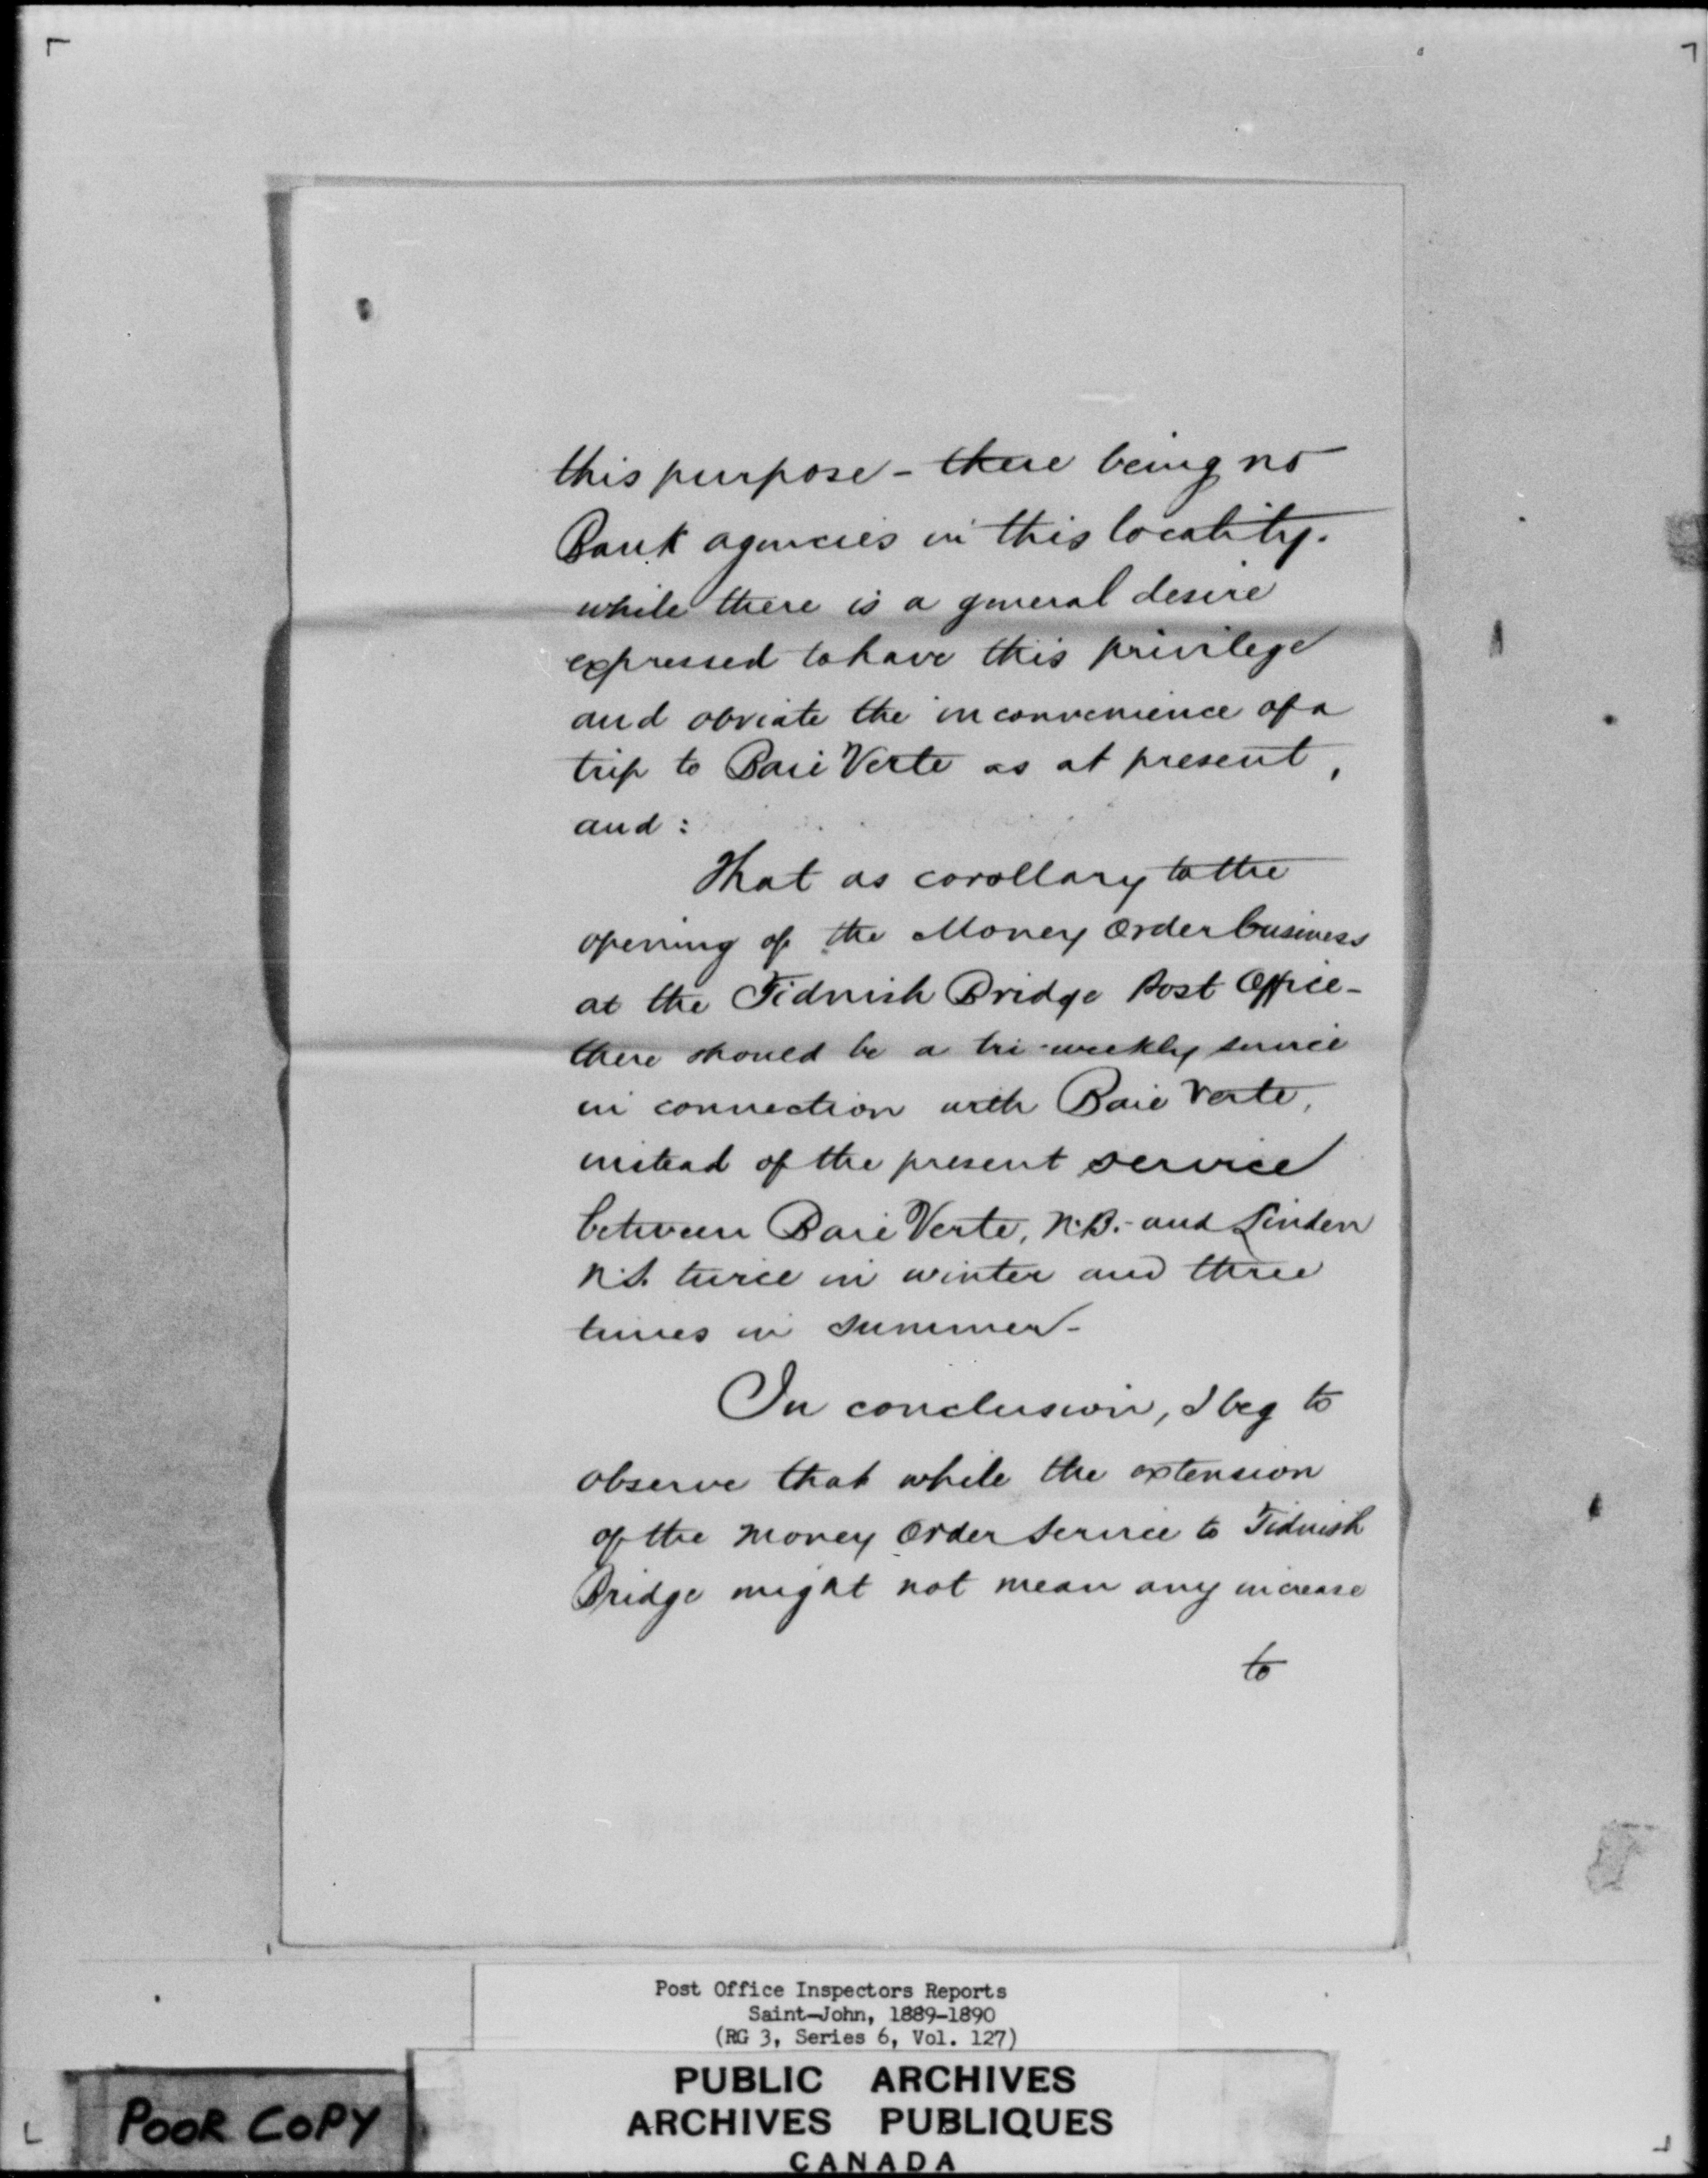 this purpose - there being no
Bank agencies in this locality.
while there is a general desire
expressed to have this privilege
and obviate the inconvenience of a
trip to Baie Verte as at present,
and:
That as corollary to the
opening of the Money Order business
at the Tidnish Bridge Post Office -
there should be a tri-weekly service
in connection with Baie Verte,
instead of the present service
between Baie Verte, N.B. - and Linden
N.S. twice in winter and three
times in summer -
In conclusion, I beg to
observe that while the extension
of the Money Order Service to Tidnish
Bridge might not mean any increase
to
Post Office Inspectors Reports
Saint-John, 1889-1890
(RG 3, Series 6, Vol. 127)
PUBLIC ARCHIVES
ARCHIVES PUBLIQUES
CANADA
POOR COPY